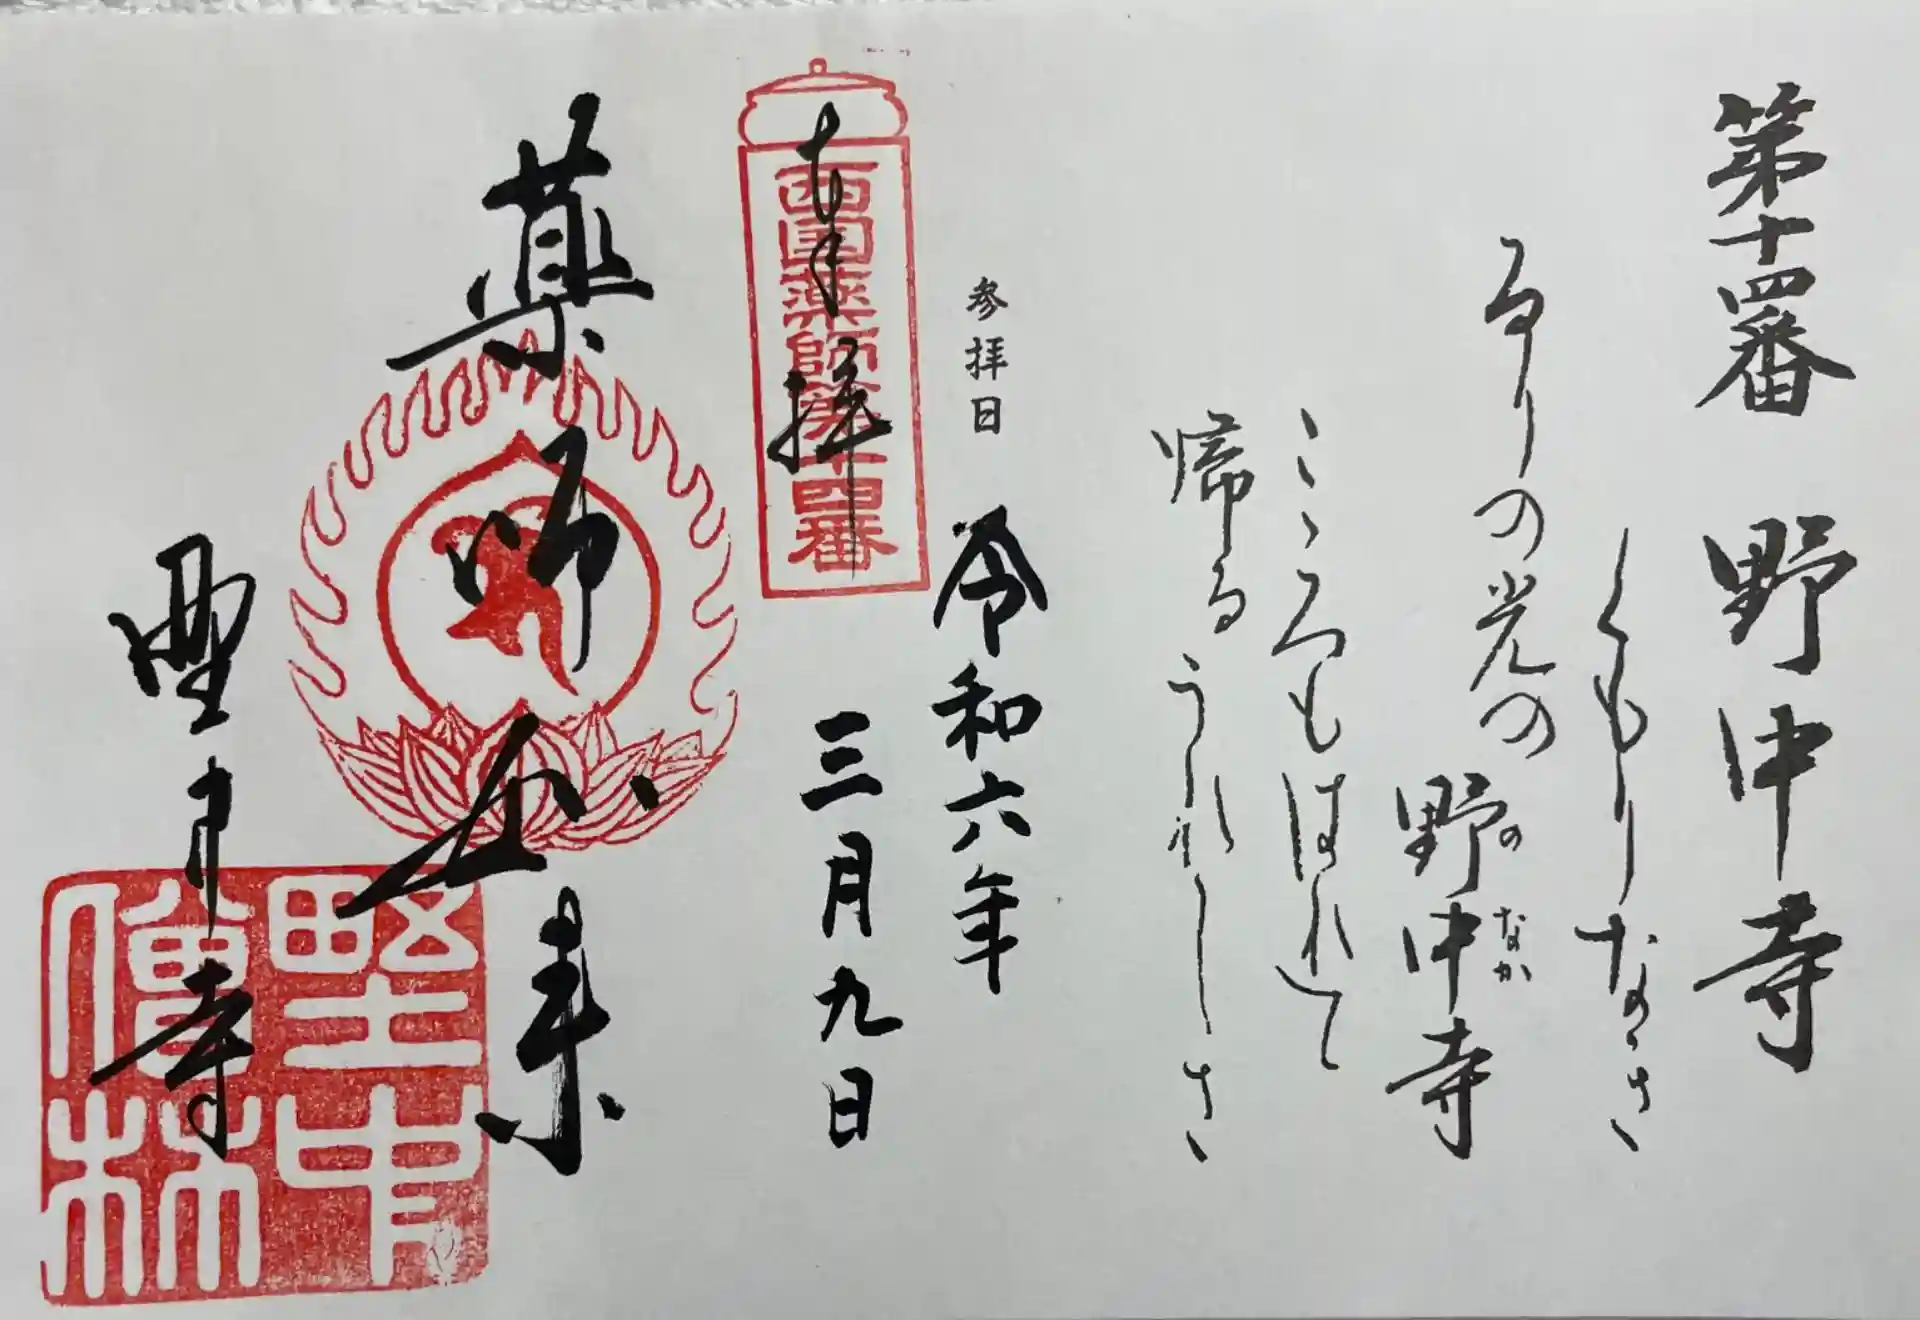 第十四番 野中寺
くもりなき
るりの光の 野中寺
のなか
こゝろもはれて
帰るうれしさ
参拝日 令和六年
三月九日
奉拝
西国薬師第十四番
薬師如来
野中寺
野中
僧林